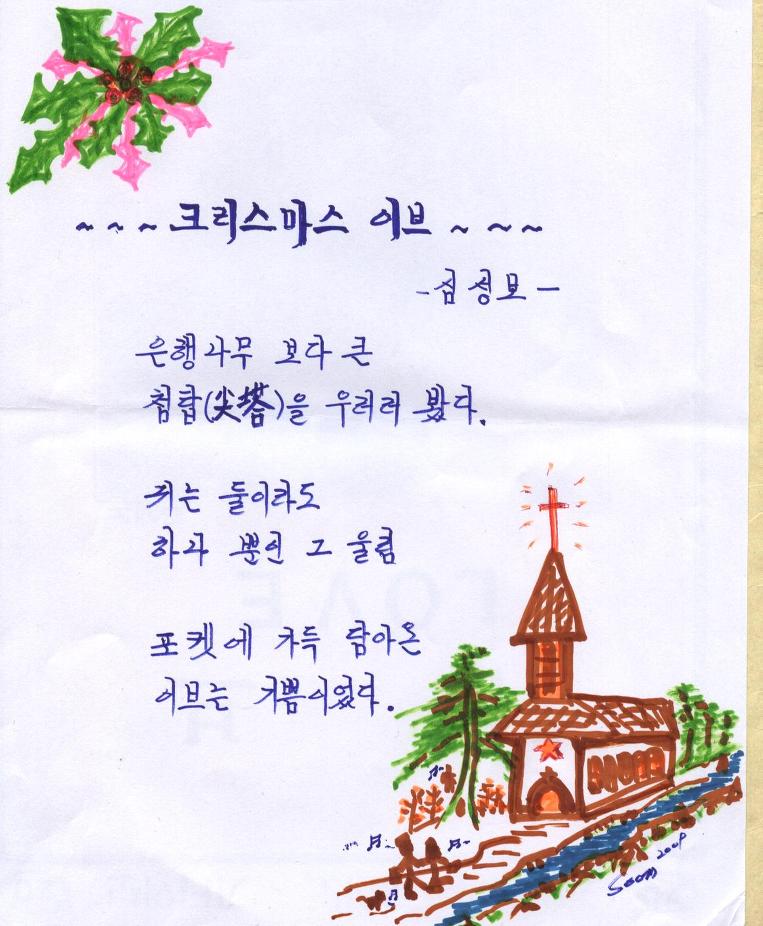 ~ ~ ~ 크리스마스 이브 ~ ~ ~
- 심성보 -
은행나무 보다 큰
첨탑(尖塔)을 우러러 봤다.
귀는 둘이라도
하나 뿐인 그 울림
포켓에 가득 담아온
이브는 기쁨이었다.
LOVE
Soom 2009